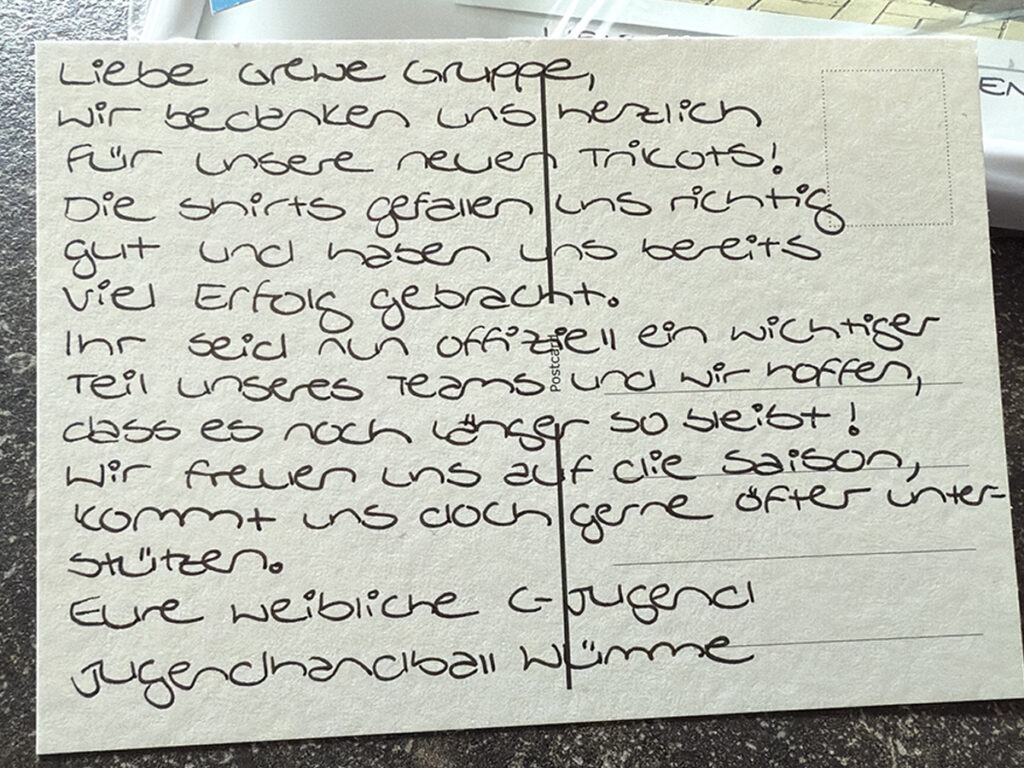 Liebe Grewe Gruppe,
wir bedanken uns herzlich
für unsere neuen Trikots!
Die Shirts gefallen uns richtig
gut und haben uns bereits
viel Erfolg gebracht.
Ihr seid nun offiziell ein wichtiger
Teil unseres Teams und wir hoffen,
dass es noch länger so bleibt!
Wir freuen uns auf die Saison,
kommt uns doch gerne öfter unter-
stützen.
Eure weibliche C-Jugend
Jugendhandball Wümme
Postcard
EN